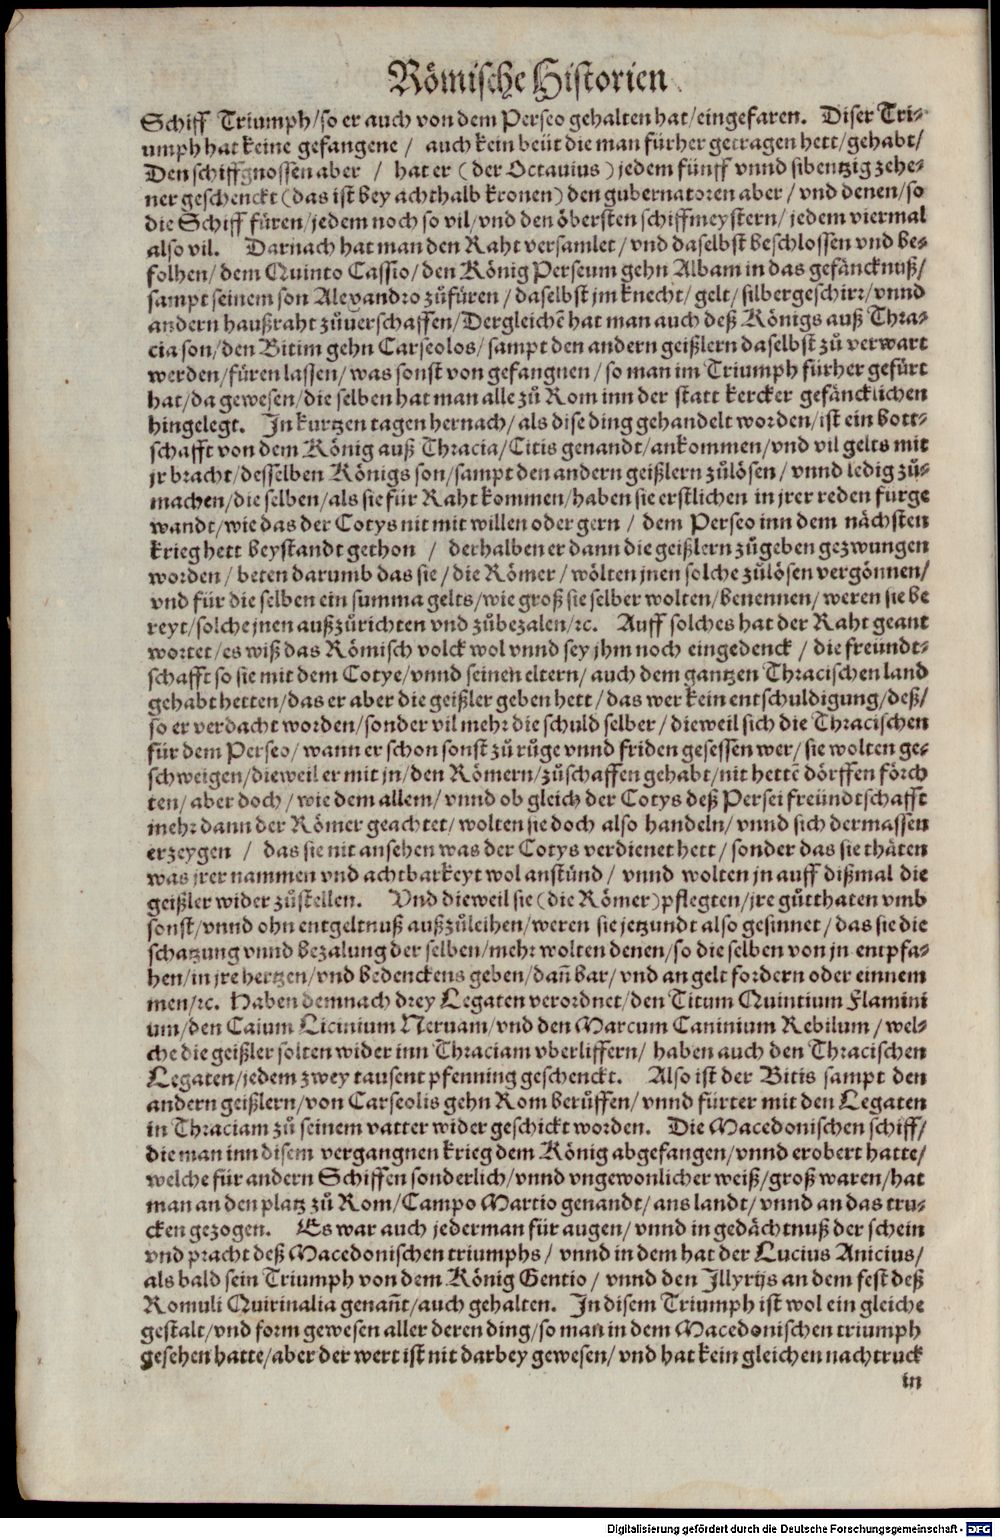 Römische Historien
Schiff Triumph/so er auch von dem Perseo gehalten hat/eingefaren. Diser Tri⸗
umph hat keine gefangene / auch kein beüt die man fürher getragen hett/gehabt/
Den schiffgnossen aber / hat er (der Octauius) jedem fünff vnnd sibentzig zehe⸗
ner geschenckt (das ist bey achthalb kronen) den gubernatoren aber/vnd denen/so
die Schiff füren/jedem noch so vil/vnd den öbersten schiffmeystern/jedem viermal
also vil. Darnach hat man den Raht versamlet/vnd daselbst beschlossen vnd be⸗
folhen/dem Quinto Cassio/den König Perseum gehn Albam in das gefäncknuß/
sampt seinem son Alexandro zůfüren/daselbst jm knecht/gelt/silbergeschirr/vnnd
andern haußraht zůuerschaffen/Dergleichẽ hat man auch deß Königs auß Thra⸗
cia son/den Bitim gehn Carseolos/sampt den andern geißlern daselbst zů verwart
werden/füren lassen/was sonst von gefangnen/so man im Triumph fürher gefürt
hat/da gewesen/die selben hat man alle zů Rom inn der statt kercker gefäncklichen
hingelegt. In kurtzen tagen hernach/als dise ding gehandelt worden/ist ein bott⸗
schafft von dem König auß Thracia/Citis genandt/ankommen/vnd vil gelts mit
jr bracht/desselben Königs son/sampt den andern geißlern zůlösen/vnnd ledig zů⸗
machen/die selben/als sie für Raht kommen/haben sie erstlichen in jrer reden fürge
wandt/wie das der Cotys nit mit willen oder gern / dem Perseo inn dem nächsten
krieg hett beystandt gethon / derhalben er dann die geißlern zůgeben gezwungen
worden/beten darumb das sie/die Römer/wölten jnen solche zůlösen vergönnen/
vnd für die selben ein summa gelts/wie groß sie selber wolten/benennen/weren sie be
reyt/solche jnen außzůrichten vnd zůbezalen/rc. Auff solches hat der Raht geant
wortet/es wiß das Römisch volck wol vnnd sey jhm noch eingedenck / die freündt⸗
schafft so sie mit dem Cotye/vnnd seinen eltern/auch dem gantzen Thracischen land
gehabt hetten/das er aber die geißler geben hett/das wer kein entschuldigung/deß/
so er verdacht worden/sonder vil mehr die schuld selber/dieweil sich die Thracischen
für dem Perseo/wann er schon sonst zů růge vnnd friden gesessen wer/sie wolten ge⸗
schweigen/dieweil er mit jn/den Römern/zůschaffen gehabt/nit hettẽ dörffen förch
ten/aber doch/wie dem allem/vnnd ob gleich der Cotys deß Persei freündtschafft
mehr dann der Römer geachtet/wolten sie doch also handeln/vnnd sich dermassen
erzeygen / das sie nit ansehen was der Cotys verdienet hett/sonder das sie thäten
was jrer nammen vnd achtbarkeyt wol anstünd/vnnd wolten jn auff dißmal die
geißler wider zůstellen. Vnd dieweil sie (die Römer) pflegten/jre gůtthaten vmb
sonst/vnnd ohn entgeltnuß außzůleihen/weren sie jetzundt also gesinnet/das sie die
schatzung vnnd bezalung der selben/mehr wolten denen/so die selben von jn entpfa⸗
hen/in jre hertzen/vnd bedenckens geben/dañ bar/vnd an gelt fordern oder einnem
men/rc. Haben demnach drey Legaten verordnet/den Titum Quintium Flamini
um/den Caium Licinium Neruam/vnd den Marcum Caninium Rebilum/wel⸗
che die geißler solten wider inn Thraciam vberliffern/haben auch den Thracischen
Legaten/jedem zwey tausent pfenning geschenckt. Also ist der Bitis sampt den
andern geißlern/von Carseolis gehn Rom berůffen/vnnd fürter mit den Legaten
in Thraciam zů seinem vatter wider geschickt worden. Die Macedonischen schiff/
die man inn disem vergangnen krieg dem König abgefangen/vnnd erobert hatte/
welche für andern Schiffen sonderlich/vnnd vngewonlicher weiß/groß waren/hat
man an den platz zů Rom/Campo Martio genandt/ans landt/vnnd an das tru⸗
cken gezogen. Es war auch jederman für augen/vnnd in gedächtnuß der schein
vnd pracht deß Macedonischen triumphs/vnnd in dem hat der Lucius Anicius/
als bald sein Triumph von dem König Gentio/vnnd den Illyrijs an dem fest deß
Romuli Quirinalia genañt/auch gehalten. In disem Triumph ist wol ein gleiche
gestalt/vnd form gewesen aller deren ding/so man in dem Macedonischen triumph
gesehen hatte/aber der wert ist nit darbey gewesen/vnd hat kein gleichen nachtruck
in
Digitalisierung gefördert durch die Deutsche Forschungsgemeinschaft - DFG